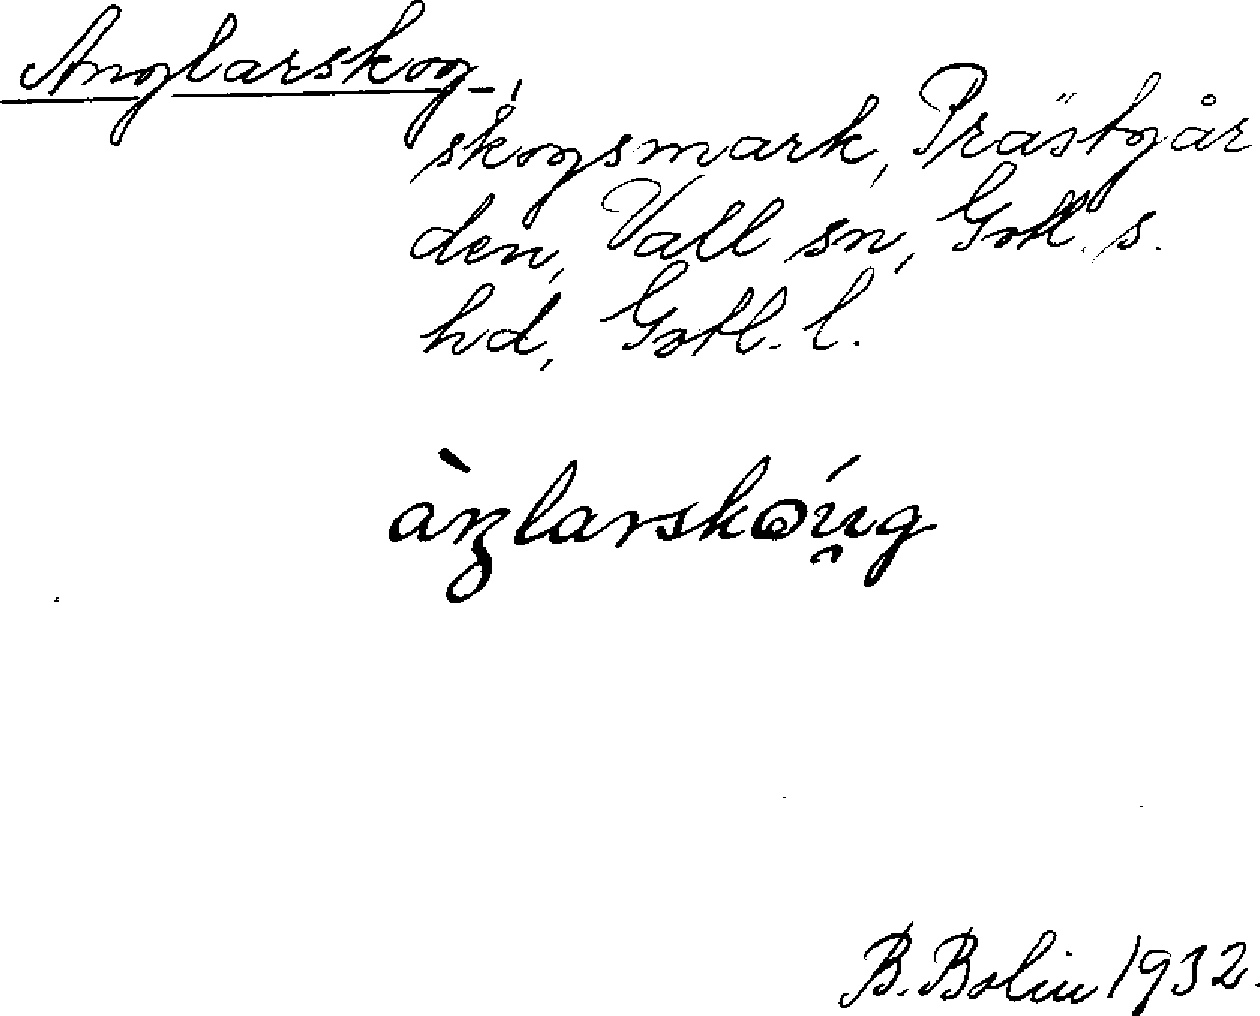 Anglarskog,
skogsmark, Prästgår
den, Vall sn, Gotl. s.
hd, Gotl. l.
àŋlarskǿu̯g
B. Bolin 1932.